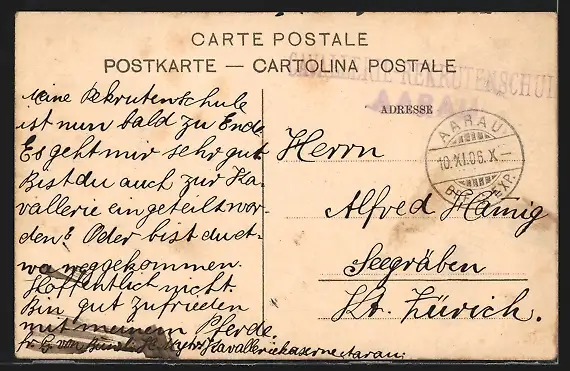 CARTE POSTALE
POSTKARTE — CARTOLINA POSTALE
CAVALLERIE-REKRUTENSCHULE
AARAU
ADRESSE
AARAU
10.XI.06.X
EXP.
Meine Rekrutenschule
ist nun bald zu Ende
Es geht mir sehr gut
Bist du auch zur Ka-
vallerie eingeteilt wor-
den? Oder bist du et-
wa weggekommen.
Hoffentlich nicht.
Bin gut zufrieden
mit meinem Pferde.
Kavalleriekaserne Aarau.
Herrn
Alfred
Seegräben
Kt. Zürich.